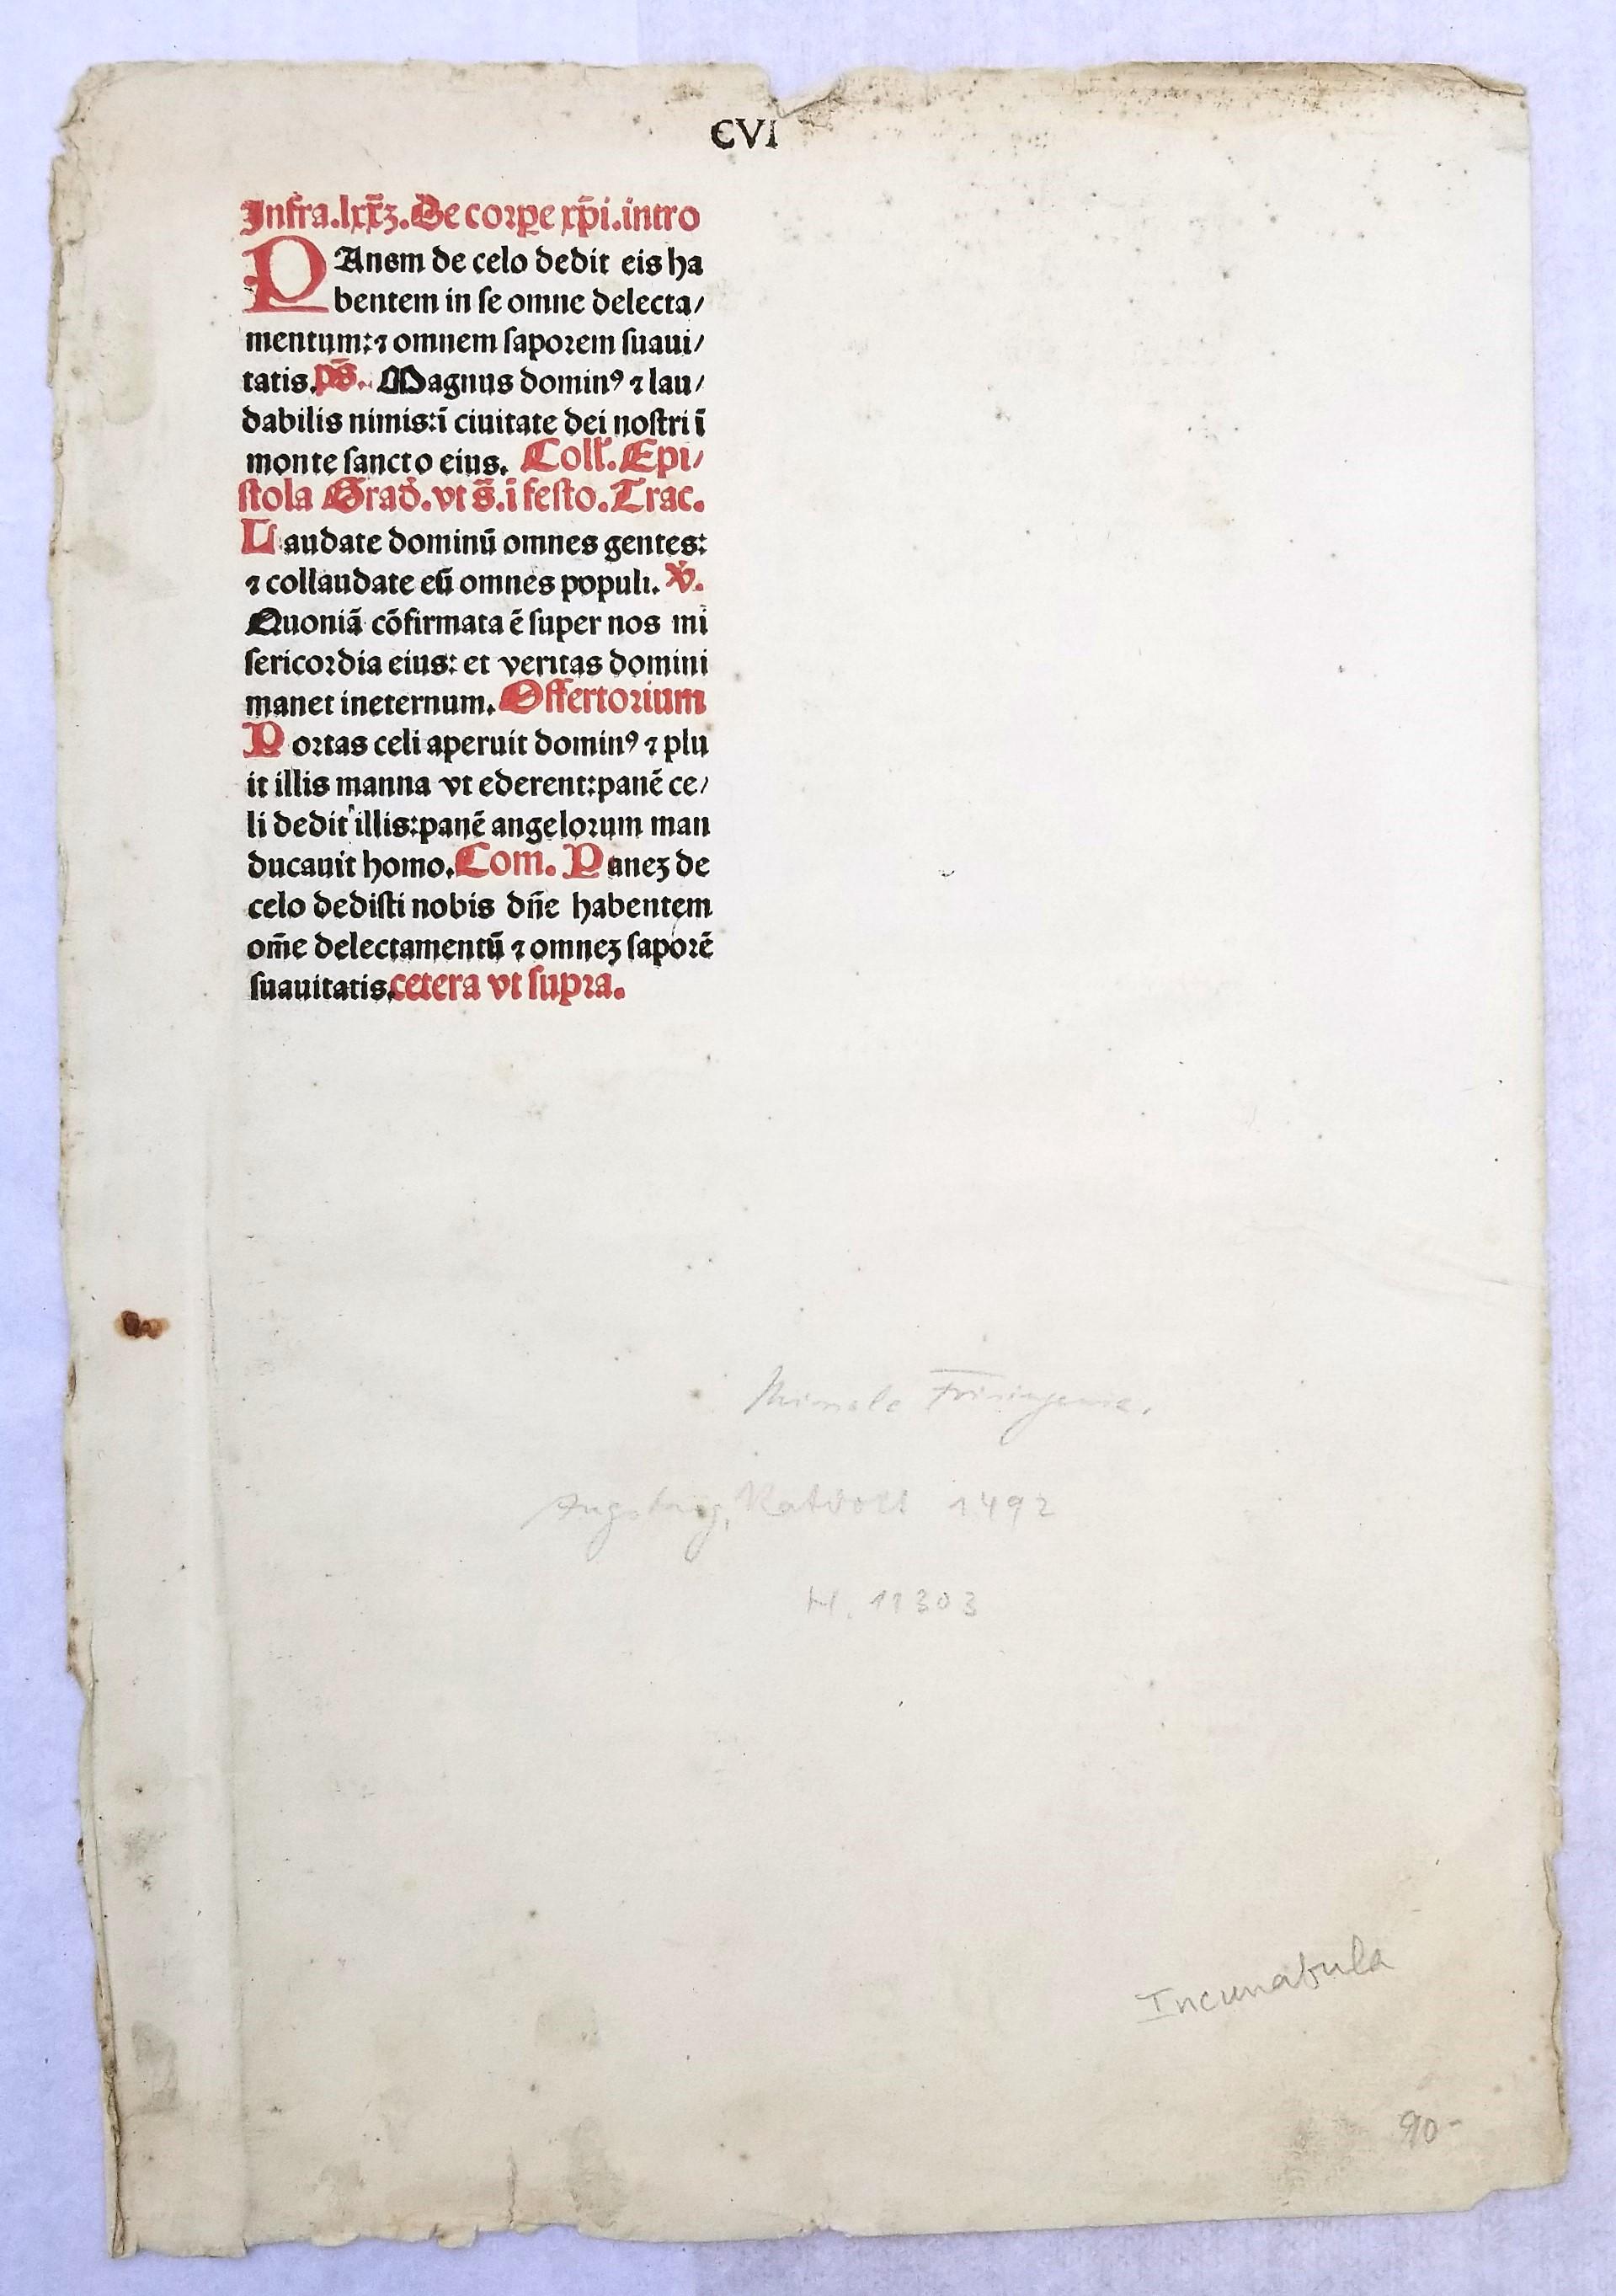 CVI
Infra.lxx̄ꝫ.De corꝑe xp̄i.intro
PAnem de celo dedit eis ha
bentem in se omne delecta/
mentum:⁊ omnem saporem suaui/
tatis.p̄s. Magnus dominꝰ ⁊ lau/
dabilis nimis:ī ciuitate dei nostri ī
monte sancto eius. Coll̄.Epi/
stola Grad̄.vt s̄.ī festo.Trac.
Laudate dominū omnes gentes:
⁊ collaudate eū omnes populi. v̄.
Quoniā cōfirmata ē super nos mi
sericordia eius: et veritas domini
manet ineternum. Offertorium
Portas celi aperuit dominꝰ ⁊ plu
it illis manna vt ederent:panē ce/
li dedit illis:panē angelorum man
ducauit homo.Com. Paneꝫ de
celo dedisti nobis dn̄e habentem
om̄e delectamentū ⁊ omneꝫ saporē
suauitatis.cetera vt supra.
Missale Frisingense.
Augsburg, Ratdolt 1492
H. 11303
Incunabula
90-